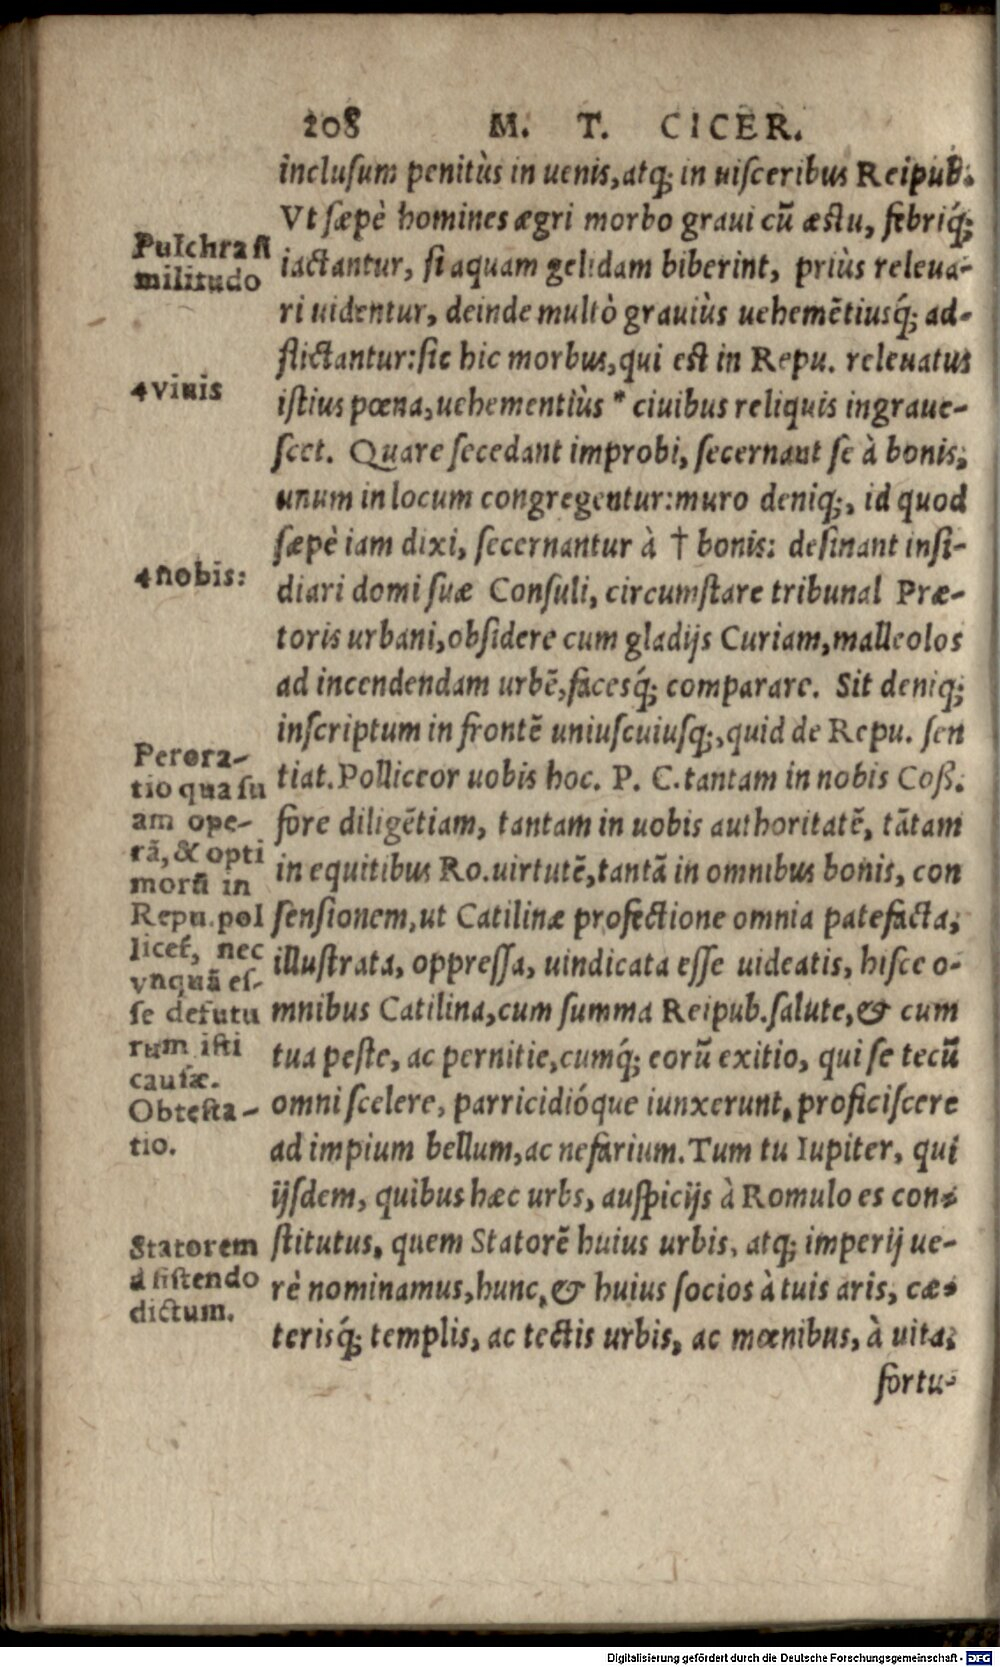 208 M. T. CICER.
inclusum penitùs in uenis, atq; in uisceribus Reipub.
Vt sæpè homines ægri morbo graui cū æstu, febriq́;
Pulchra si
militudo
iactantur, si aquam gelidam biberint, priùs releua-
ri uidentur, deinde multò grauiùs uehemētiusq́; ad-
flictantur: sic hic morbus, qui est in Repu. releuatus
4 viuis
istius pœna, uehementiùs * ciuibus reliquis ingraue-
scet. Quare secedant improbi, secernant se à bonis,
unum in locum congregentur: muro deniq;, id quod
sæpè iam dixi, secernantur à † bonis: desinant insi-
4 nobis:
diari domi suæ Consuli, circumstare tribunal Præ-
toris urbani, obsidere cum gladijs Curiam, malleolos
ad incendendam urbē, facesq́; comparare. Sit deniq;
inscriptum in frontē uniuscuiusq;, quid de Repu. sen
Perora-
tio qua su
am ope-
rā, & opti
morū in
Repu. pol
licet, nec
vnquā es-
se defutu
rum isti
causæ.
Obtesta-
tio.
tiat. Polliceor uobis hoc. P. C. tantam in nobis Coß.
fore diligētiam, tantam in uobis authoritatē, tātam
in equitibus Ro. uirtutē, tantā in omnibus bonis, con
sensionem, ut Catilinæ profectione omnia patefacta,
illustrata, oppressa, uindicata esse uideatis, hisce o-
mnibus Catilina, cum summa Reipub. salute, & cum
tua peste, ac pernitie, cumq́; eorū exitio, qui se tecū
omni scelere, parricidióque iunxerunt, proficiscere
ad impium bellum, ac nefarium. Tum tu Iupiter, qui
ijsdem, quibus hæc urbs, auspicijs à Romulo es con-
Statorem
à sistendo
dictum.
stitutus, quem Statorē huius urbis, atq; imperij ue-
rè nominamus, hunc, & huius socios à tuis aris, cæ-
terisq́; templis, ac tectis urbis, ac mœnibus, à uita,
fortu-
Digitalisierung gefördert durch die Deutsche Forschungsgemeinschaft - DFG